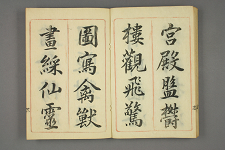 宮殿盤鬱
樓觀飛驚
圖寫禽獸
畫綵仙靈